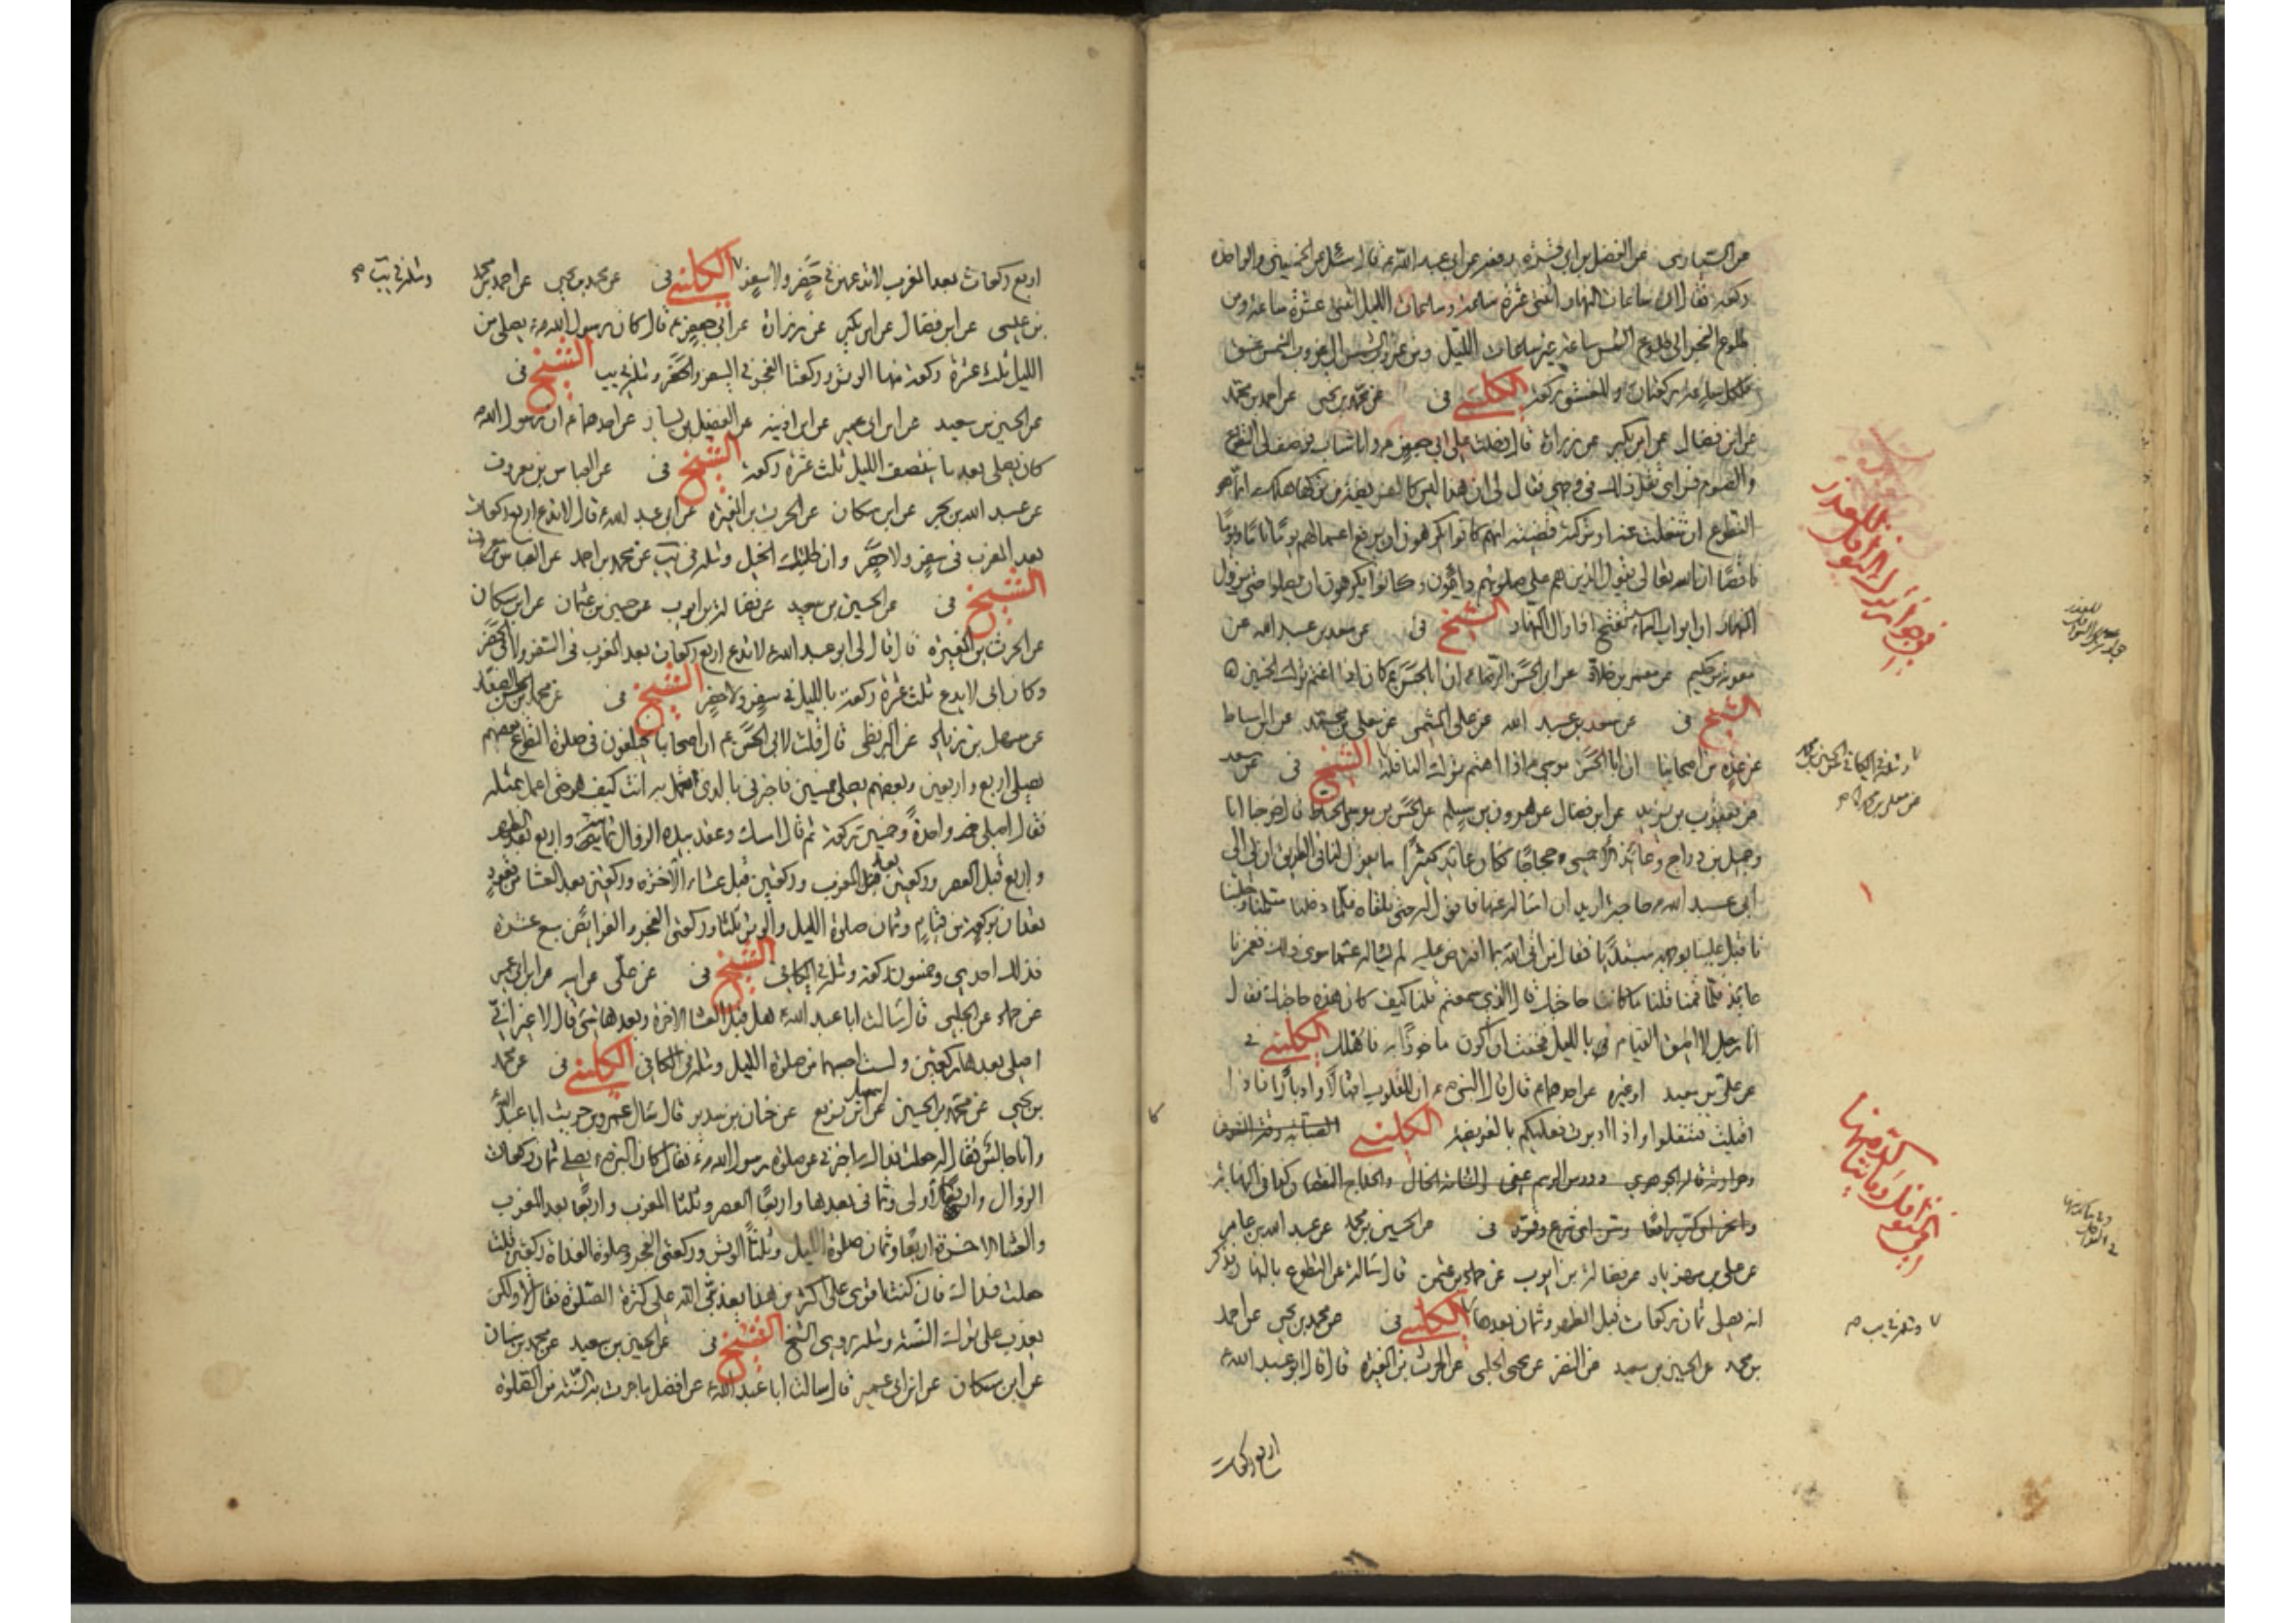 عن السياري عن الفضل بن ابي قره رفعه عن ابي عبد الله ع قال سئل عن الخمسين والواحدة
ركعة فقال ان ساعات النهار اثنتي عشرة ساعة وساعات الليل اثنتي عشرة ساعة ومن
طلوع الفجر الى طلوع الشمس ساعة غير ساعات الليل ومن غروب الشمس الى غروب الشفق غسق
فلكل ساعة ركعتان وللغسق ركعة الكليني في عن محمد بن يحيى عن احمد بن محمد
عن ابن فضال عن ابن بكير عن زرارة قال دخلت على ابي جعفر ع وانا شاب فوصف لي التطوع
والصوم فراى ثقل ذلك في وجهي فقال لي ان هذا ليس كالفريضة من تركها هلك انما هو
التطوع ان شغلت عنه او تركته قضيته انهم كانوا يكرهون ان يرفع اعمالهم يوما تاما ويوما
ناقصا ان الله تعالى يقول الذين هم على صلوتهم دائمون وكانوا يكرهون ان يصلوا حتى يزول
النهار ان ابواب السماء تفتح اذا زال النهار الشيخ في عن سعد بن عبد الله عن
معوية بن حكيم عن معمر بن خلاد عن ابي الحسن الرضا ع ان ابا الحسن ع كان اذا اغتم ترك الخمسين
الشيخ في عن سعد بن عبد الله عن علي الميثمي عن معلى بن محمد عن ابن اسباط
عن عدة من اصحابنا ان ابا الحسن موسى ع اذا اهتم ترك النافلة الشيخ في عن سعد
عن يعقوب بن يزيد عن ابن فضال عن هرون بن مسلم عن الحسن بن موسى الحناط قال خرجنا انا
وجميل بن دراج وعائذ الاحمسي حجاجا فكان عائذ كثيرا ما يقول لنا في الطريق ان لي الى
ابي عبد الله ع حاجة اريد ان اساله عنها فاقول له حتى نلقاه فلما دخلنا سلمنا وجلسنا
فاقبل علينا بوجهه مبتدئا فقال من اتى الله بما افترض عليه لم يساله عما سوى ذلك فغمزنا
عائذ فلما قمنا قلنا ما كانت حاجتك قال الذي سمعتم قلنا كيف كان هذه حاجتك فقال
انا رجل لا اطيق القيام بالليل فخفت ان اكون ماخوذا به فاهلك الكليني في
عن علي بن سعيد او غيره عن احدهما ع قال قال النبي ص ان للقلوب اقبالا وادبارا فاذا
اقبلت فتنفلوا واذا ادبرت فعليكم بالفريضة الكليني
في عن الحسين بن محمد عن عبد الله بن عامر
عن علي بن مهزيار عن فضالة بن ايوب عن حماد بن عثمن قال سالته عن التطوع بالنهار فذكر
انه يصلى ثمان ركعات قبل الظهر وثمان بعدها الكليني في عن محمد بن يحيى عن احمد
بن محمد عن الحسين بن سعيد عن النضر عن يحيى الحلبي عن الحرث بن المغيرة قال قال ابو عبد الله ع
اربع ركعات
فى جواز ترك النوافل للعذر
ومثله في الكافي عن الحسين بن محمد
عن معلى بن محمد
النوافل وما يتأكد منها
ومثله في يب
اربع ركعات بعد المغرب لا تدعهن في حضر ولا سفر الكليني في عن محمد بن يحيى عن احمد بن محمد
بن عيسى عن ابن فضال عن ابن بكير عن زرارة عن ابي جعفر ع قال كان رسول الله ص يصلى من
الليل ثلث عشرة ركعة منها الوتر وركعتا الفجر في السفر والحضر ومثله في يب الشيخ في
عن الحسين بن سعيد عن ابن ابي عمير عن ابن اذينه عن الفضيل بن يسار عن احدهما ع ان رسول الله ص
كان يصلى بعد ما ينتصف الليل ثلث عشرة ركعة الشيخ في عن العباس بن معروف
عن عبد الله بن بحر عن ابن مسكان عن الحرث بن المغيرة عن ابي عبد الله ع قال لا تدع اربع ركعات
بعد المغرب في سفر ولا حضر وان طلبتك الخيل ومثله في يب عن محمد بن احمد عن العباس بن معروف
الشيخ في عن الحسين بن سعيد عن فضالة بن ايوب عن حسين بن عثمان عن ابن مسكان
عن الحرث بن المغيرة قال قال لي ابو عبد الله ع لا تدع اربع ركعات بعد المغرب في السفر ولا في الحضر
وكان ابي لا يدع ثلث عشرة ركعة بالليل في سفر ولا حضر الشيخ في عن محمد بن الحسن الصفار
عن سهل بن زياد عن البزنطي قال قلت لابي الحسن ع ان اصحابنا يختلفون في صلوة التطوع بعضهم
يصلى اربع واربعين وبعضهم يصلى خمسين فاخبرني بالذي تعمل به انت كيف هو حتى اعمل بمثله
فقال اصلى واحدة وخمسين ركعة ثم قال امسك وعقد بيده الزوال ثمانية واربع بعد الظهر
واربع قبل العصر وركعتين بعد المغرب وركعتين قبل عشاء الآخرة وركعتين بعد العشا من قعود
تعدان بركعة من قيام وثمان صلوة الليل والوتر ثلثا وركعتي الفجر والفرائض سبع عشرة
فذلك احدى وخمسون ركعة ومثله في الكافي الشيخ في عن علي عن ابيه عن ابن ابي عمير
عن حماد عن الحلبي قال سالت ابا عبد الله ع هل قبل العشا الاخرة وبعدها شئ قال لا غير اني
اصلى بعدها ركعتين ولست احسبهما من صلوة الليل ومثله في الكافي الكليني في عن محمد
بن يحيى عن محمد بن الحسين عن ابن اسمعيل بزيع عن حنان بن سدير قال سال عمرو بن حريث ابا عبد الله ع
وانا جالس فقال له جعلت فداك اخبرني عن صلوة رسول الله ص فقال كان النبي ص يصلى ثمان ركعات
الزوال واربعا الاولى وثماني بعدها واربعا العصر وثلثا المغرب واربعا بعد المغرب
والعشا الاخرة اربعا وثمان صلوة الليل وثلثا الوتر وركعتي الفجر وصلوة الغداة ركعتين قلت
جعلت فداك فان كنت اقوى على اكثر من هذا يعذبني الله على كثرة الصلوة فقال لا ولكن
يعذب على ترك السنة ومثله روى الشيخ الشيخ في عن الحسين بن سعيد عن محمد بن سنان
عن ابن مسكان عن ابن ابي عمير قال سالت ابا عبد الله ع عن افضل ما جرت به السنة من الصلوة
ومثله في يب